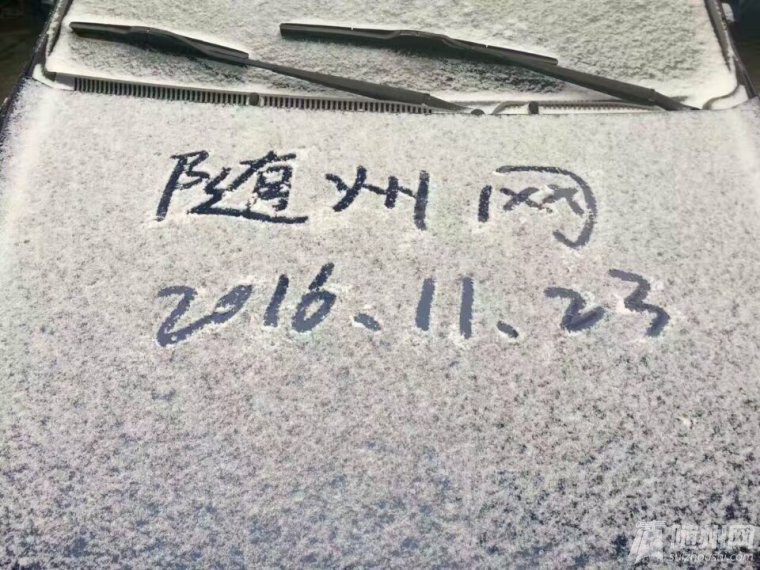 随州网
2016.11.23
随州网
suizhousw.com